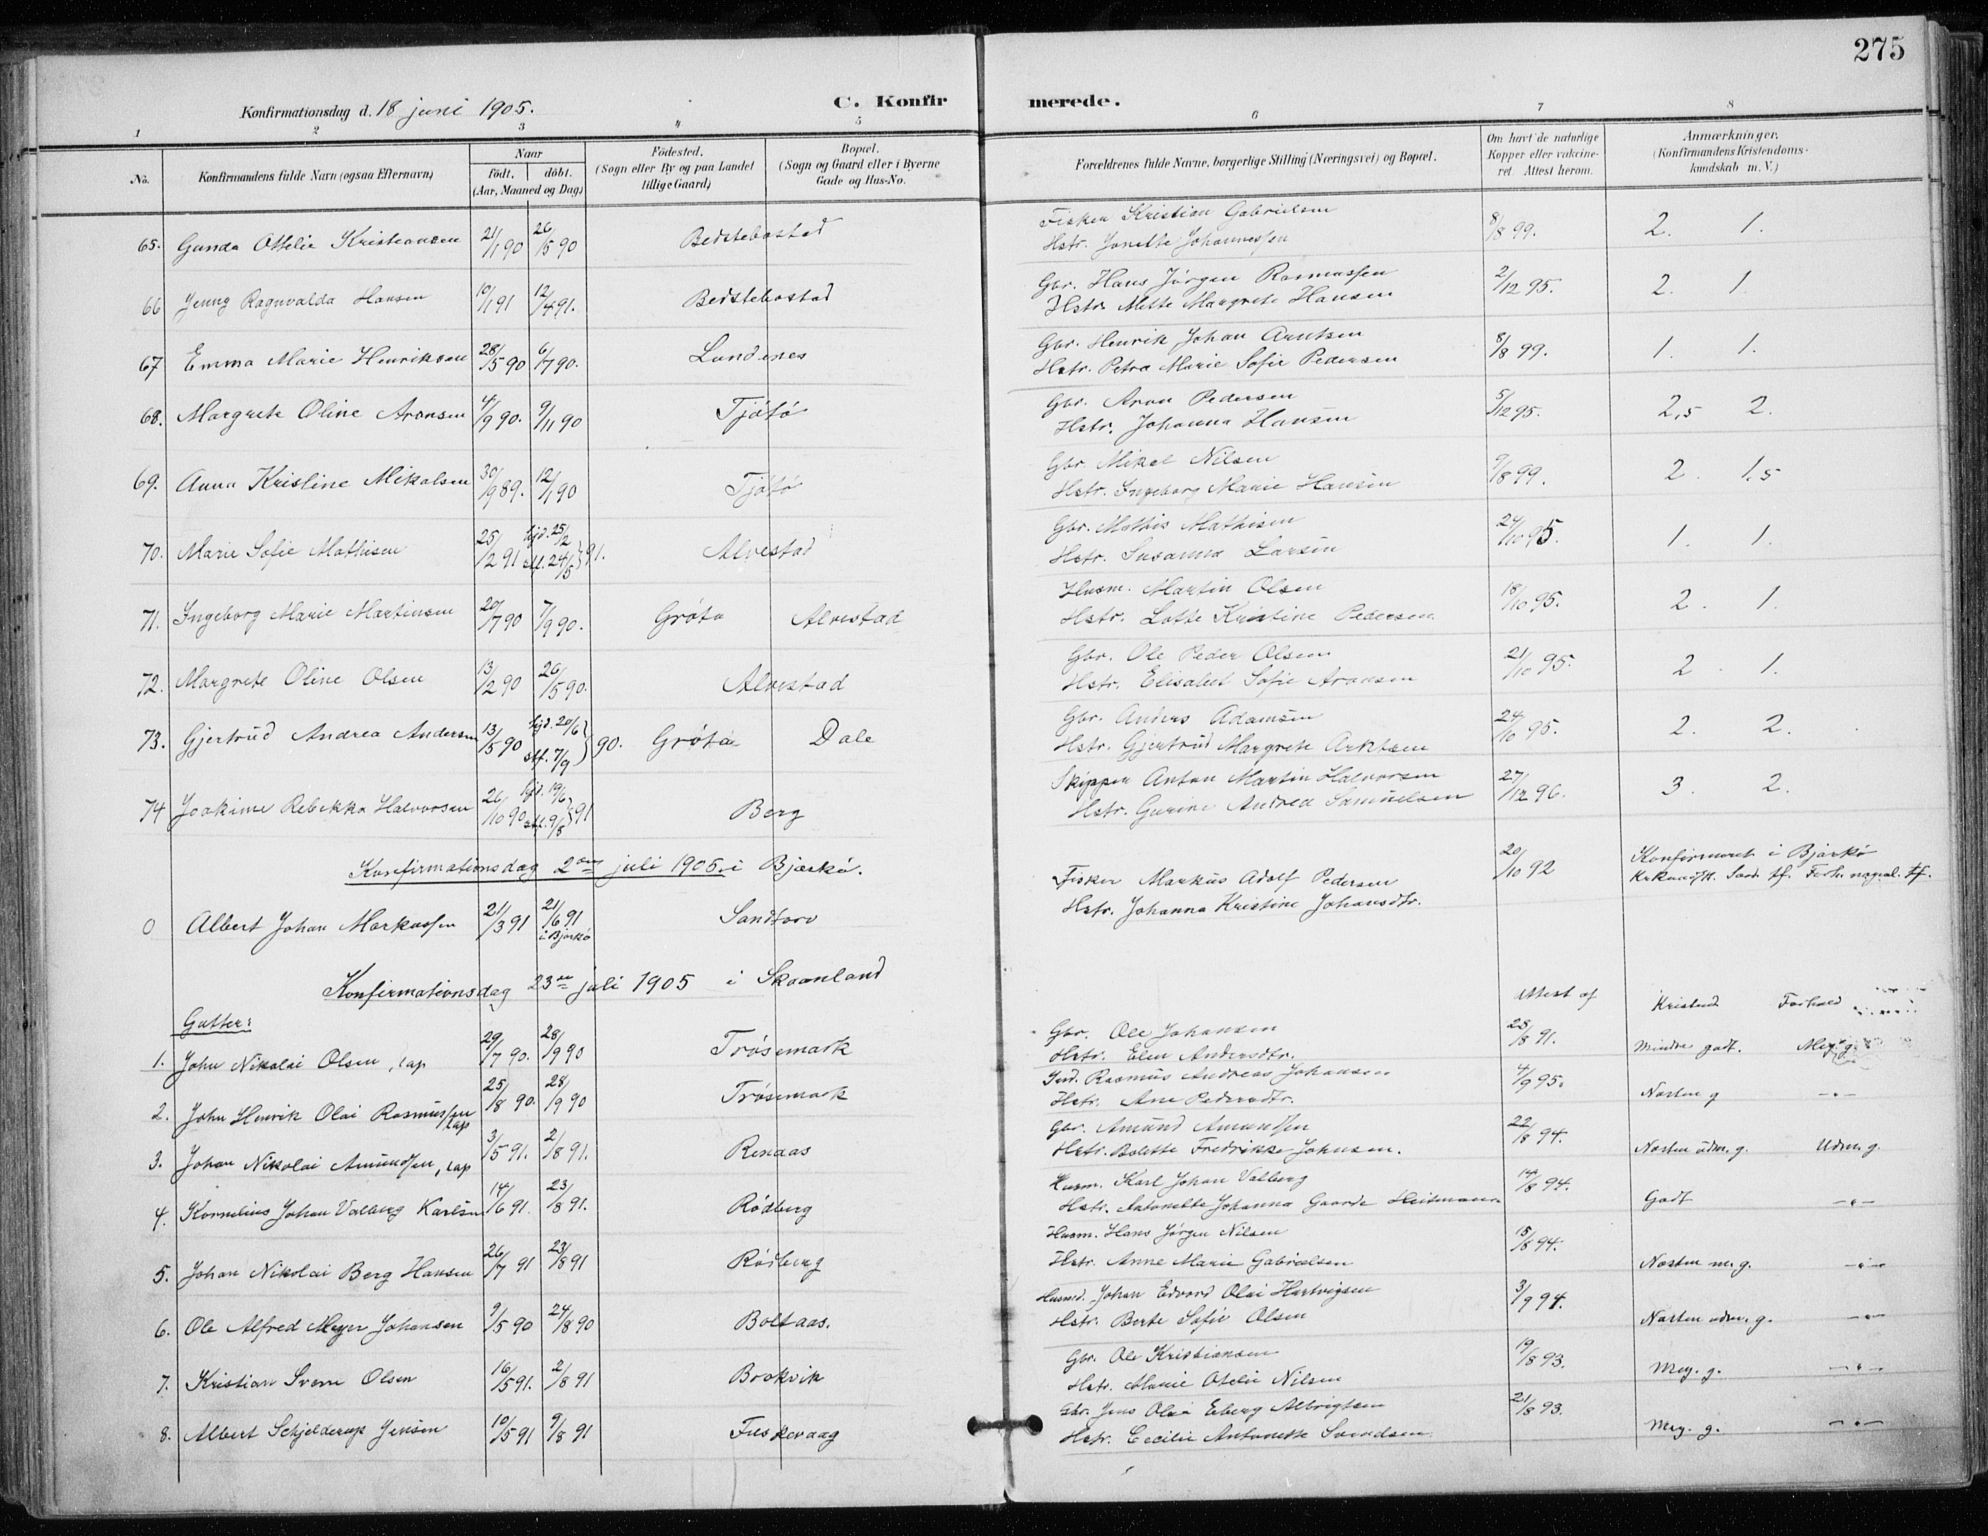 275
Konfirmationsdag d. 18 juni 1905. C. Konfirmerede.
1 2 3 4 5 6 7 8
No. Konfirmandens fulde Navn (ogsaa Efternavn) Naar født. døbt. (Aar, Maaned og Dag) Fødested. (Sogn eller By og paa Landet tillige Gaard) Bopæl. (Sogn og Gaard eller i Byerne Gade og Hus-No. Forældrenes fulde Navne, borgerlige Stilling (Næringsvei) og Bopæl. Om havt de naturlige Kopper eller vakcineret. Attest herom. Anmærkninger. (Konfirmandens Kristendomskundskab m. V.)
65. Gunda Ottelie Kristiansen 21/1 90 26/5 90 Bedstebostad Fisker Kristian Gabrielsen 8/8 99. 2. 1.
Hstr. Jonette Johannessen
66 Jenny Ragnvalda Hansen 19/1 91 12/4 91. Bedstebostad Gbr. Hans Jørgen Rasmussen 2/12 95. 2. 1.
Hstr. Mette Margrete Hansen
67 Emma Marie Henriksen 28/5 90 6/7 90. Lundenes Gbr. Henrik Johan Arntsen 8/8 99. 1. 1.
Hstr. Petra Marie Sofie Pedersen
68. Margrete Oline Aronsen 4/9 90. 9/11 90 Tjøtø Gbr. Aron Pedersen 5/12 95. 2,5 2.
Hstr. Johanna Hansen
69. Anna Kristine Mikalsen 30/9 89. 12/1 90 Tjøtø Gbr. Mikal Nilsen 9/8 99. 2. 1.5
Hstr. Ingeborg Marie Hansen
70. Marie Sofie Mathisen 25/2 91 hjd. 25/2 stf. 24/5 } 91. Alvestad Gbr. Mathis Mathisen 24/10 95. 1. 1.
Hstr. Susanna Larsen
71. Ingeborg Marie Martinsen 20/7 90 7/9 90. Grøta Alvestad Husm. Martin Olsen 18/10 95. 2. 1.
Hstr. Lotte Kristine Pedersen
72. Margrete Oline Olsen 13/2 90 26/5 90. Alvestad Gbr. Ole Peder Olsen 21/10 95. 2. 1.
Hstr. Elisabet Sofie Aronsen
73. Gjertrud Andrea Andersen 13/5 90 hjd. 20/6 stf. 7/9 } 90. Grøta Dale Gbr. Anders Adamsen 24/10 95. 2. 2.
Hstr. Gjertrud Margrete Arktsen
74 Joakime Rebekka Halvorsen 26/10 90 hjd. 19/6 stf. 9/8 } 91 Berg Skipper Anton Martin Halvorsen 27/12 96. 3. 2.
Hstr. Gurine Andrea Samuelsen
Konfirmationsdag 2den juli 1905 i Bjarkø.
0 Albert Johan Markussen 21/3 91 21/6 91 i Bjarkø Sandtorv Fisker Markus Adolf Pedersen 20/10 92 Konfirmeret i Bjarkø
Hstr. Johanna Kristine Johansdtr.
Konfirmationsdag 23de juli 1905 i Skaanland
Gutter: Attest af Kristend Forhold
1. John Nikolai Olsen, lap 29/7 90. 28/9 90 Trøsemark Gbr. Ole Johansen 28/8 91. Mindre godt. Meg. g.
Hstr. Elen Andersdtr.
2. John Henrik Olai Rasmussen lap 25/8 90. 28/9 90 Trøsemark Ind. Rasmus Andreas Johansen 4/9 95. Næsten g —"—
Hstr. Ane Pedersdtr.
3. Johan Nikolai Amundsen, lap 3/5 91. 2/8 91. Renaas Gbr. Amund Amundsen 22/8 94. Næsten udm. g. Udm. g.
Hstr. Bolette Fredrikke Johnsen.
4. Kornelius Johan Valberg Karlsen 14/6 91. 23/8 91. Rødberg Husm. Karl Johan Valberg 14/8 94. Godt —"—
Hstr. Antonette Johanna Gaarde Heitmann
5. Johan Nikolai Berg Hansen 26/7 91 23/8 91 Rødberg Husm. Hans Jørgen Nilsen 15/8 94. Næsten m. g. —"—
Hstr. Anne Marie Gabrielsen
6. Ole Alfred Meyer Johansen 9/5 90 24/8 90 Boltaas. Husmd. Johan Edvard Olai Hartvigsen 3/9 94. Næsten udm. g. —"—
Hstr. Berte Sofie Olsen
7. Kristian Svane Olsen 16/5 91. 2/8 91 Brokvik Gbr. Ole Kristiansen 19/8 93. Meg. g. —"—
Hstr. Marie Otelie Nilsen
8. Albert Schjelderup Jensen 10/5 91 9/8 91 Fuskevaag Gbr. Jens Olai Eberg Albrigtsen 21/8 93. Meg. g. —"—
Hstr. Cecilie Antonette Svendsen